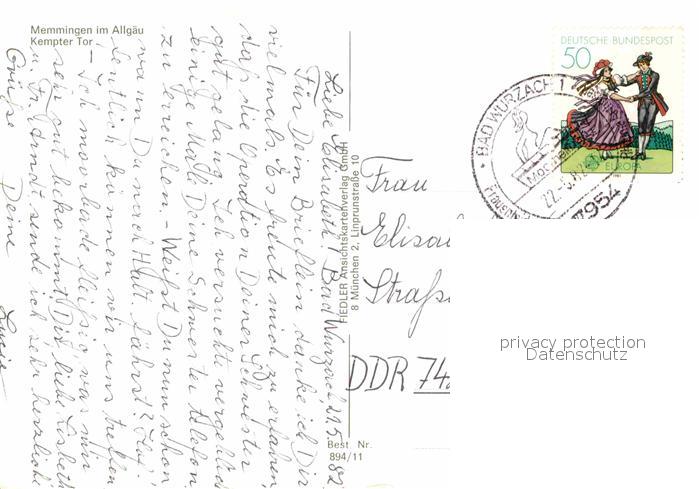 Memmingen im Allgäu
Kempter Tor
Liebe Elisabeth! Bad Wurzach, 21.5.82
Für Dein Brieflein danke ich Dir
vielmals. Es freute mich zu erfahren,
daß die Operation Deiner Schwester
gut gelang. Ich versuchte vergeblich
einige Male Deine Schwester telefon.
zu erreichen. - Weißt Du nun schon
wann Du nach Hall fährst?
können wir uns treffen
- Ich was mir
sehr gut bekommt. Dir, liebe Lisbeth
u. Fr. Arndt sende ich sehr herzliche
Grüße Deine
FIEDLER Ansichtskartenverlag GmbH
8 München 2, Linprunstraße 10
Best. Nr.
894/11
DEUTSCHE BUNDESPOST
50
EUROPA
BAD WURZACH 1
7954
Frau
Elisa
Straß
DDR 74
privacy protection
Datenschutz